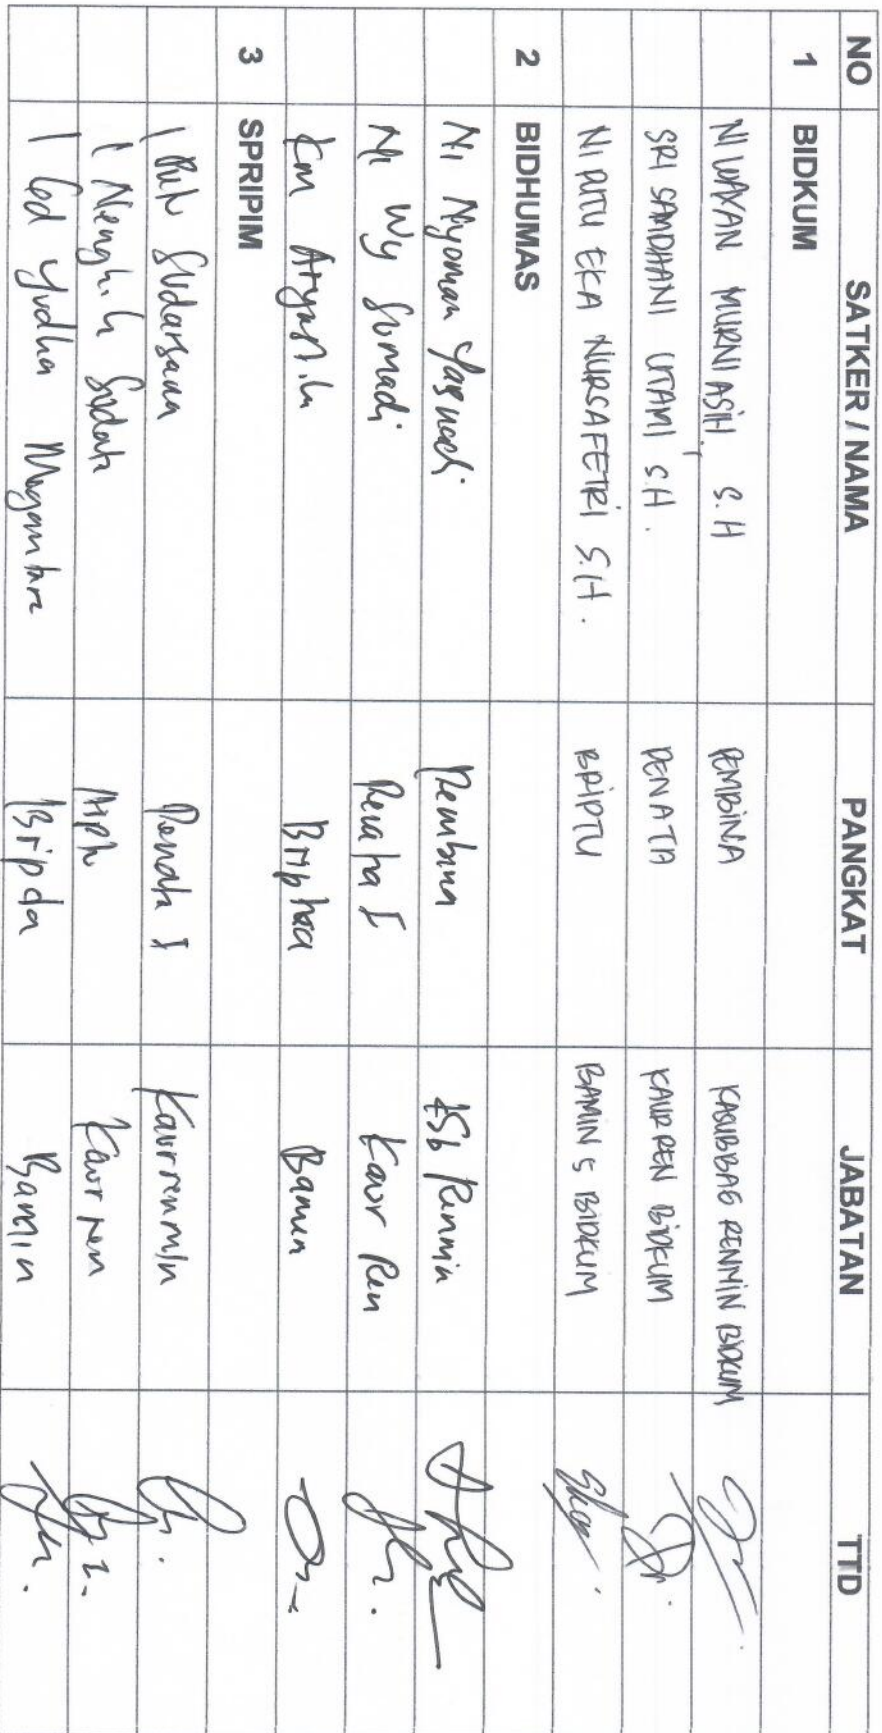 NO SATKER / NAMA PANGKAT JABATAN TTD
1 BIDKUM
NI WAYAN MURNIASIH, S.H PEMBINA KASUBBAG RENMIN BIDKUM
SRI SAMDHANI UTAMI S.H. PENATA KAUR REN BIDKUM
NI PUTU EKA NURSAFETRI S.H. BRIPTU BAMIN 5 BIDKUM
2 BIDHUMAS
Ni Nyoman Pembina KSb Renmin
Ni Wy Sumadi Penata I Kaur Ren
Km Bripka Bamin
3 SPRIPIM
I Putu Sudarsana Penata I Kaurrenmin
I Nengah Kaur ren
I Gd Yudha Megantara Bripda Bamin